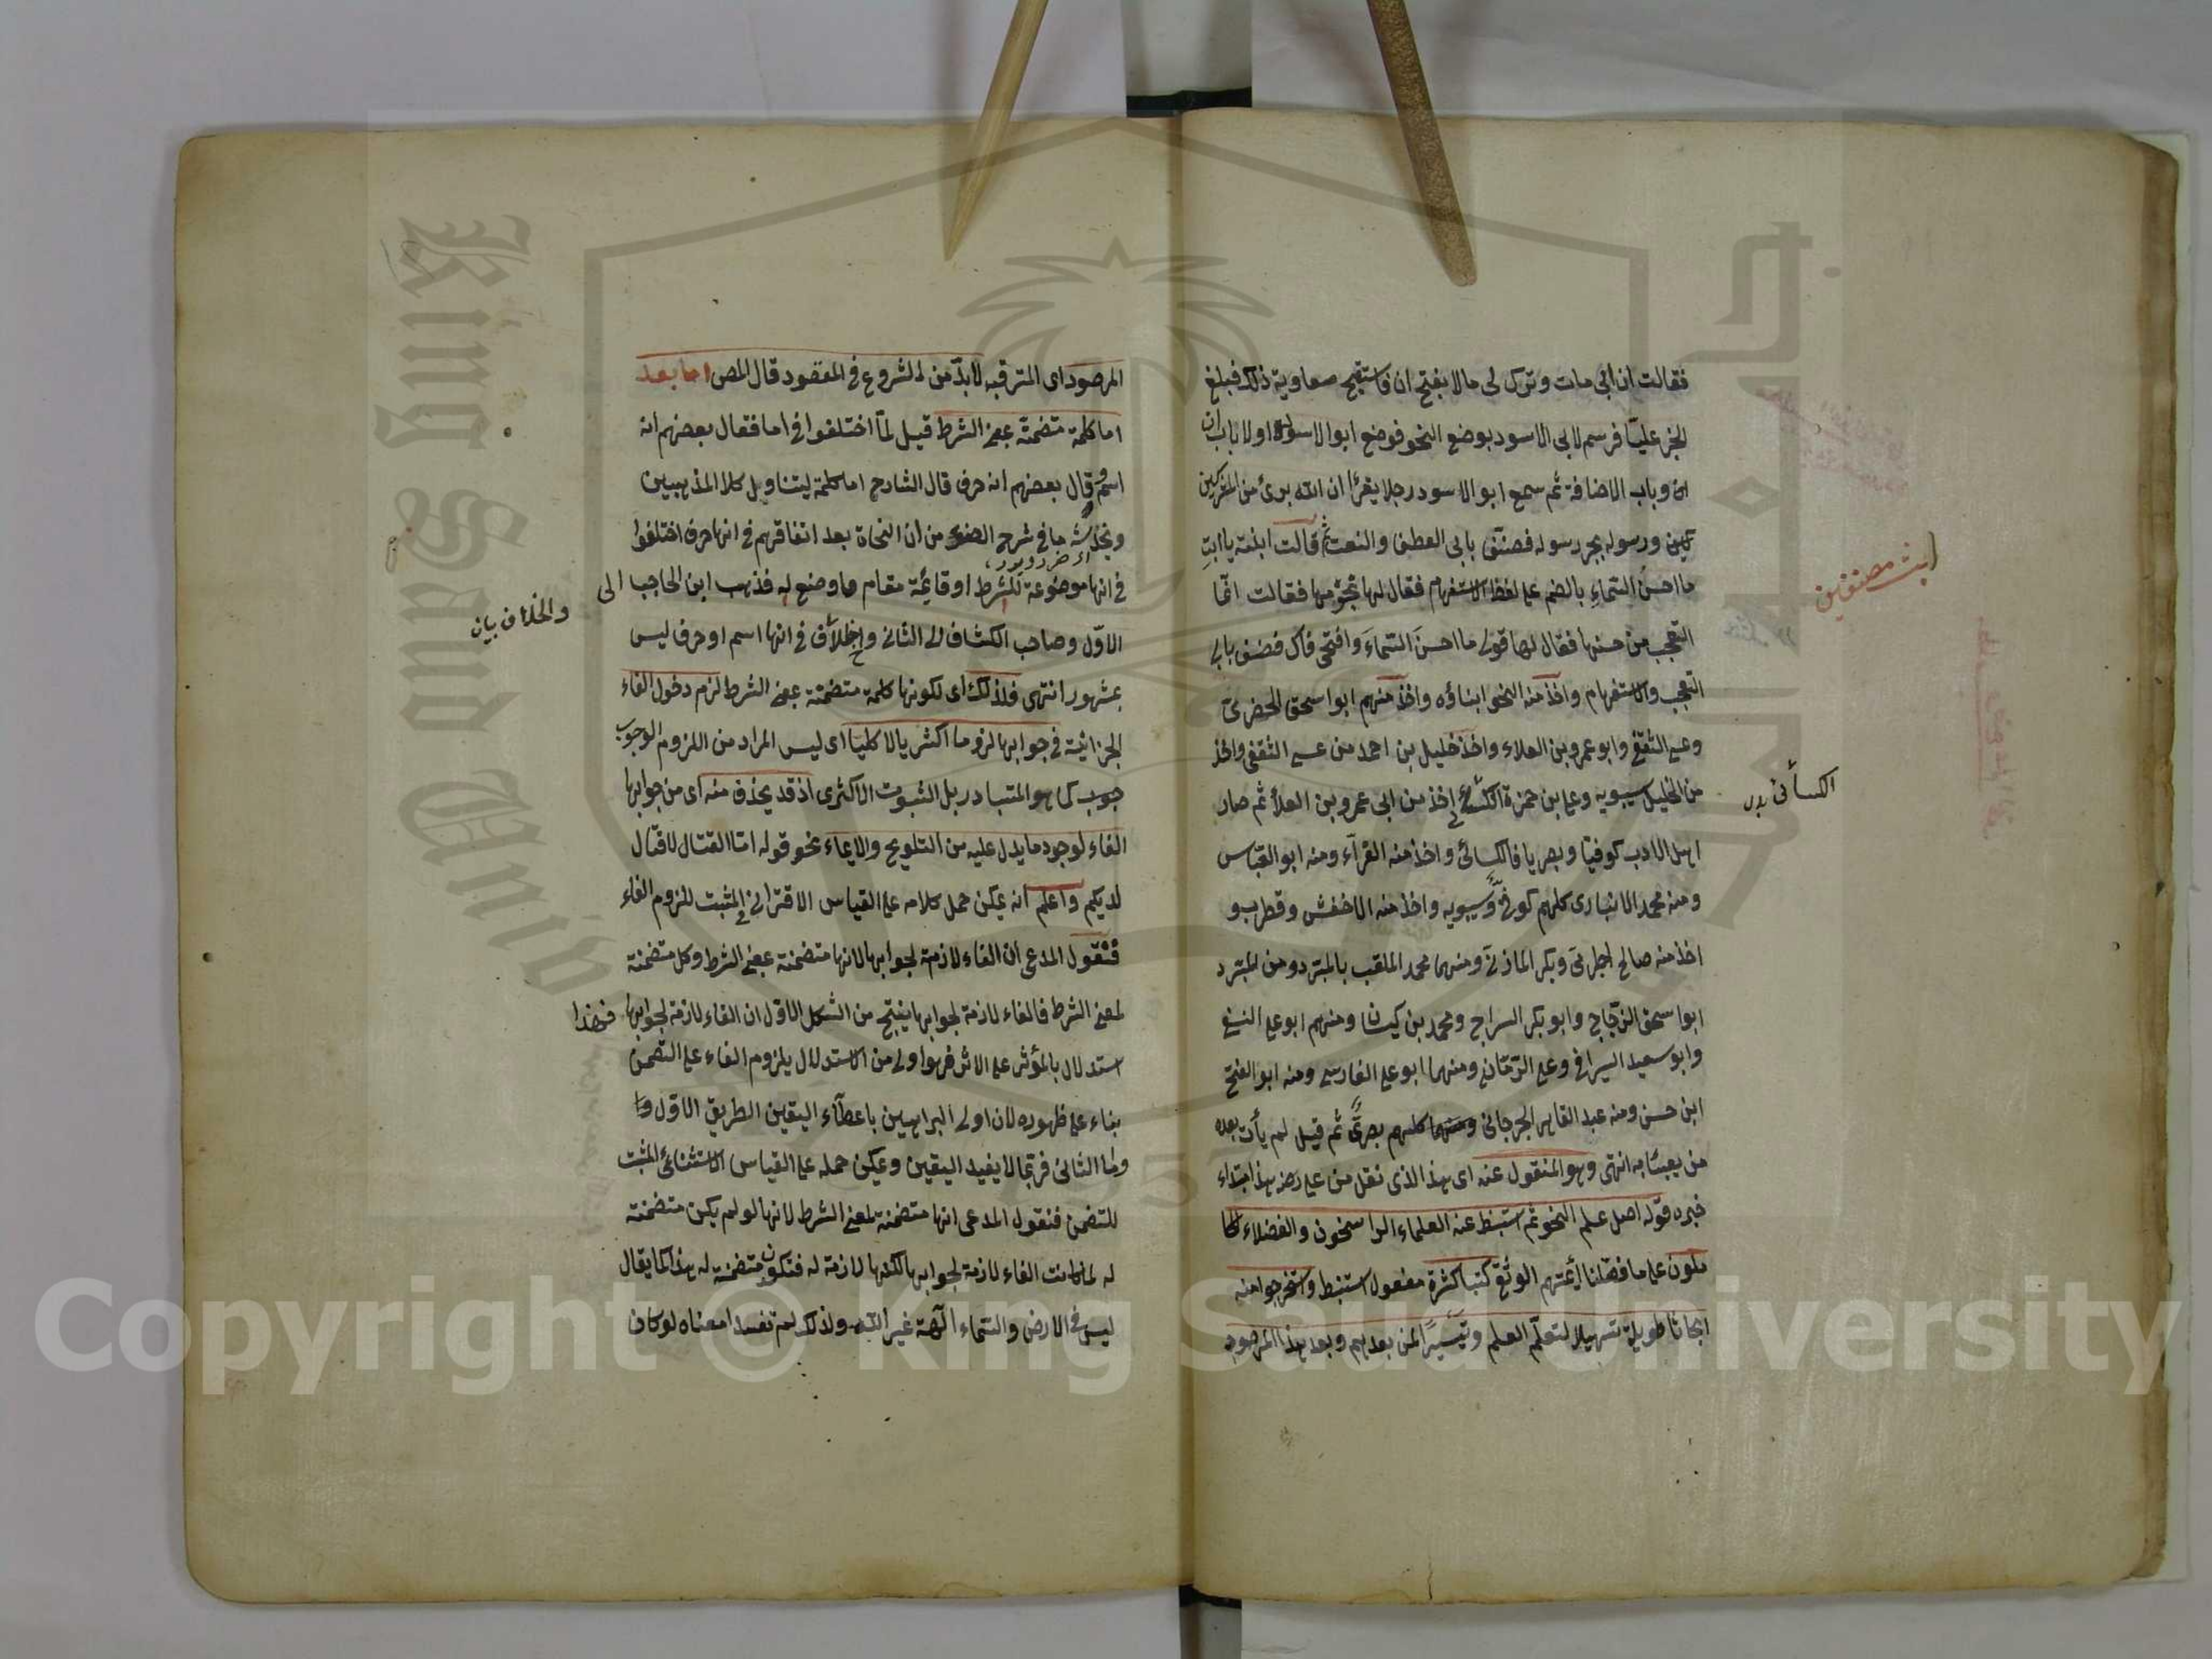 فقالت ان ابى مات وترك لى مالا بفتح ان فاستقبح معاوية ذلك فبلغ
الخبر عليّا فرسم لابى الاسود بوضع النحو فوضع ابو الاسود اولا باب ان
وباب الاضافة ثم سمع ابو الاسود رجلا يقرأ ان الله برئ من المشركين
ورسوله بجر رسوله فصنّف بابى العطف والنعت ثم قالت ابنته يا ابتِ
ما احسنُ السّماءِ بالضم على لفظ الاستفهام فقال لها نجومها فقالت انّما
التعجب من حسنها فقال لها قولى ما احسنَ السّماءَ وافتحى فاك فصنف بابى
التعجب والاستفهام واخذ منه النحو ابناؤه واخذ منهم ابو اسحق الحضرمى
وعيسى الثقفى وابو عمرو بن العلاء واخذ خليل بن احمد من عيسى الثقفى واخذ
من الخليل سيبويه وعلى بن حمزة الكسائى اخذ من ابى عمرو بن العلاء ثم صار
اهل الادب كوفيّا وبصريا فالكسائى واخذ منه الفرّاء ومنه ابو العبّاس
ومنه محمد الانبارى كلهم كوفىّ وسيبويه واخذ منه الاخفش وقطرب و
اخذ منه صالح الجرمى وبكر المازنى ومنهما محمد الملقب بالمبرّد ومن المبرد
ابو اسحق الزجّاج وابو بكر السراج ومحمد بن كيسان ومنهم ابو على
وابو سعيد السيرافى وعلى الرمّانى ومنهما ابو على الفارسى ومنه ابو الفتح
ابن ومنه عبد القاهر الجرجانى كلهم بصرىّ ثم قيل لم يأت بعده
من يعبأ به انتهى وهو المنقول عنه اى هذا الذى نقل من على رضه هذا ابتداء
خبره قوله اصل علم النحو ثم استنبط عنه العلماء الراسخون والفضلاء الكا
ملون على ما فصّلنا كتبا كثرة مفعول استنبط واستخرجوا منه
ابحاثا طويلة تسهيلا لتعلّم العلم وتيسيرًا لمن بعدهم وبعد هذا المرصود
ابنت مصنفين
الكسائى
المرصود اى المترقبه لابدّ من الشروع فى المقصود قال المص اما بعد
اما كلمة متضمنة بمعنى الشرط قيل لمّا اختلفوا فى اما فقال بعضهم انه
اسم وقال بعضهم انه حرف قال الشارح اما كلمة ليتناول كلا المذهبين
ما فى شرح من ان النحاة بعد اتفاقهم فى انها حرف اختلفوا
فى انها موضوعة للشرط او قائمة مقام ما وضع له فذهب ابن الحاجب الى
الاوّل وصاحب الكشاف الى الثانى فى انها اسم او حرف ليس
بمشهور انتهى فلذلك اى لكونها كلمة متضمنة بمعنى الشرط لزم دخول الفاء
الجزائية فى جوابها لزوما اكثريا لا كليّا اى ليس المراد من اللزوم الوجوب
كما هو المتبادر بل الثبوت الاكثرى اذ قد يحذف منه اى من جوابها
الفاء لوجود ما يدل عليه من التلويح والايماء نحو قوله امّا القتال لا قتال
لديكم واعلم انه يمكن حمل كلامه على القياس الاقترانى المثبت للزوم الفاء
فنقول المدعى ان الفاء لازمة لجوابها لانها متضمنة بمعنى الشرط وكل متضمنة
لمعنى الشرط فالفاء لازمة لجوابها ينتج من الشكل الاول ان الفاء لازمة لجوابها فهذا
استدلال بالمؤثر على الاثر فهو اولى من الاستدلال بلزوم الفاء على التضمن
بناء على ظهوره لان اولى البراهين باعطاء اليقين الطريق الاول
وامّا الثانى فربّما لا يفيد اليقين ويمكن حمله على القياس الاستثنائى المثبت
للتضمن فنقول المدعى انها متضمنة لمعنى الشرط لانها لو لم يكن متضمنة
له لما كانت الفاء لازمة لجوابها لكنها لازمة له فتكون متضمنة له هذا كما يقال
ليس فى الارض والسّماء آلهة غير الله ولذلك لم تفسدا معناه لو كان
والخلاف بيان
King Saud Univ
Copyright © King Saud University